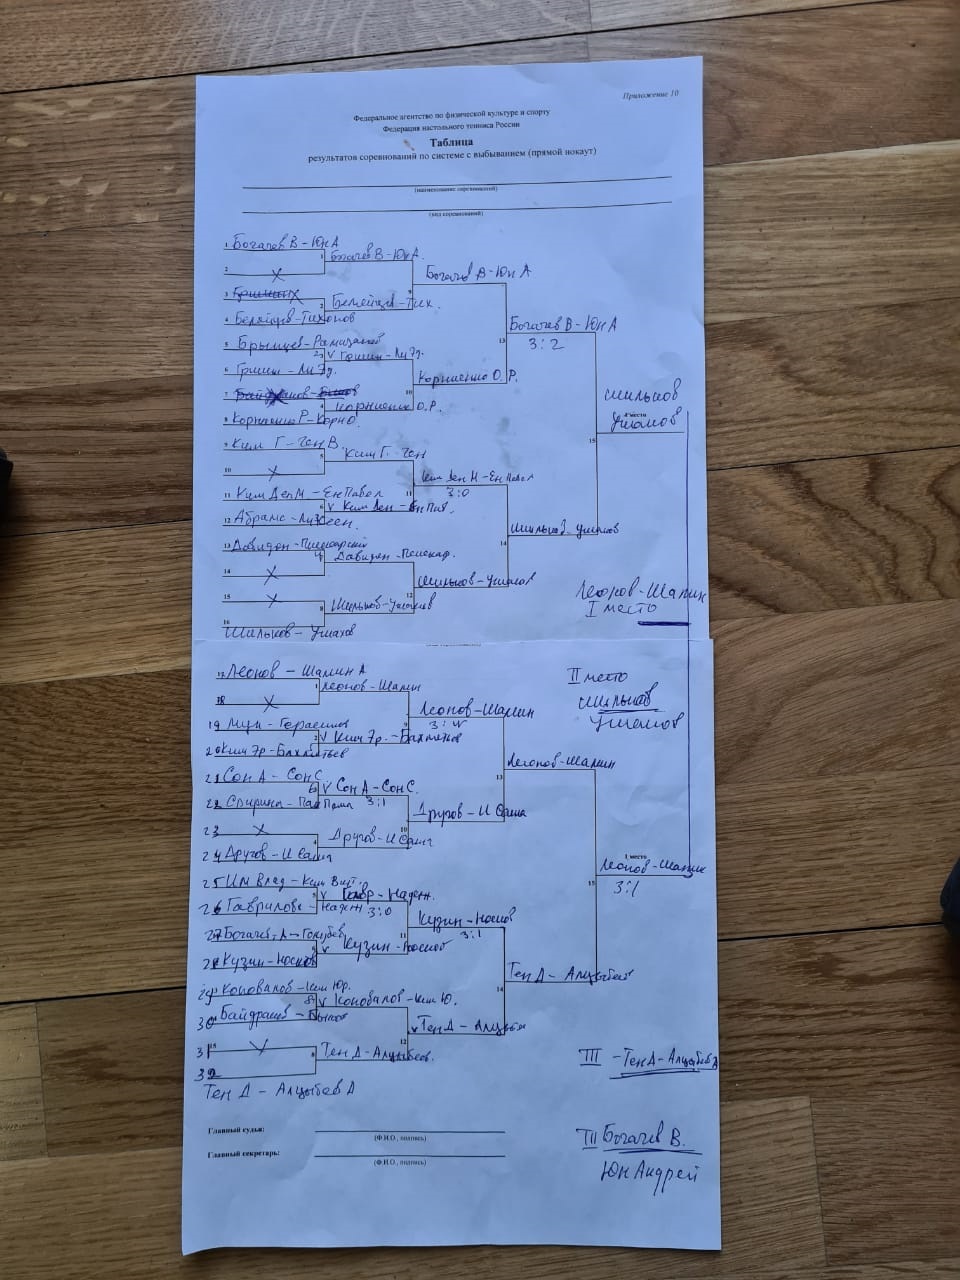 Приложение 10
Федеральное агентство по физической культуре и спорту
Федерация настольного тенниса России
Таблица
результатов соревнований по системе с выбыванием (прямой нокаут)
(наименование соревнований)
(вид соревнований)
1 Богачев В - Юн А
1 Богачев В - Юн А.
2 X
9 Богачев В - Юн А
3
2 Беляйцев - Тих.
4 Беляйцев - Тихонов
13 Богачев В - Юн А
3:2
5 Брымцев - Рамазанов
3 V Гришин - Ли Эд.
6 Гришин - Ли Эд.
10 Корниенко О. Р.
7
4 Корниенко О.Р.
8 Корниенко Р - Корн О.
15 Шильков
Ушаков
место
9 Ким Г. - Тен В.
5 Ким Г. - Тен
10 X
11 Ким Ден М - Ен Павел
3:0
11 Ким Ден М. - Ен Павел
6 V Ким Ден - Ен Пав.
12 Абрамс -
14 Шильков - Ушаков
13 Давиден -
Давиден -
14 X
12 Шильков - Ушаков
15 X
8 Шильков - Ушаков
16
Шильков - Ушаков
Леонов - Шамин
I место
17 Леонов - Шамин А
1 Леонов - Шамин
18 X
9 Леонов - Шамин
3:
19 - Герасимов
2 V Ким Эр. - Бахметьев
20 Ким Эр - Бахметьев
13 Леонов - Шамин
II место
Шильков
Ушаков
21 Сон А - Сон С
3 V Сон А - Сон С.
3:1
22 Свирина - Пак
10 Другов - И Саша
23 X
4 Другов - И Саша
24 Другов - И Саша
1 место
15 Леонов - Шамин
3:1
25 Им Влад - Ким Вит.
5 V Гавр - Надежн.
3:0
26 Гаврилов - Надежн.
11 Кузин - Носков
3:1
27 Богачев. А - Голубев
6 V Кузин - Носков
28 Кузин - Носков
14 Тен Д - Алцыбеев
29 Коновалов - Ким Юр.
V Коновалов - Ким Ю.
30 Байдрашев -
12 V Тен Д - Алцыбеев
31 15 V
8 Тен Д - Алцыбеев.
32
Тен Д - Алцыбеев А
III - Тен Д - Алцыбеев А
Главный судья:
(Ф.И.О., подпись)
Главный секретарь:
(Ф.И.О., подпись)
III Богачев В.
Юн Андрей